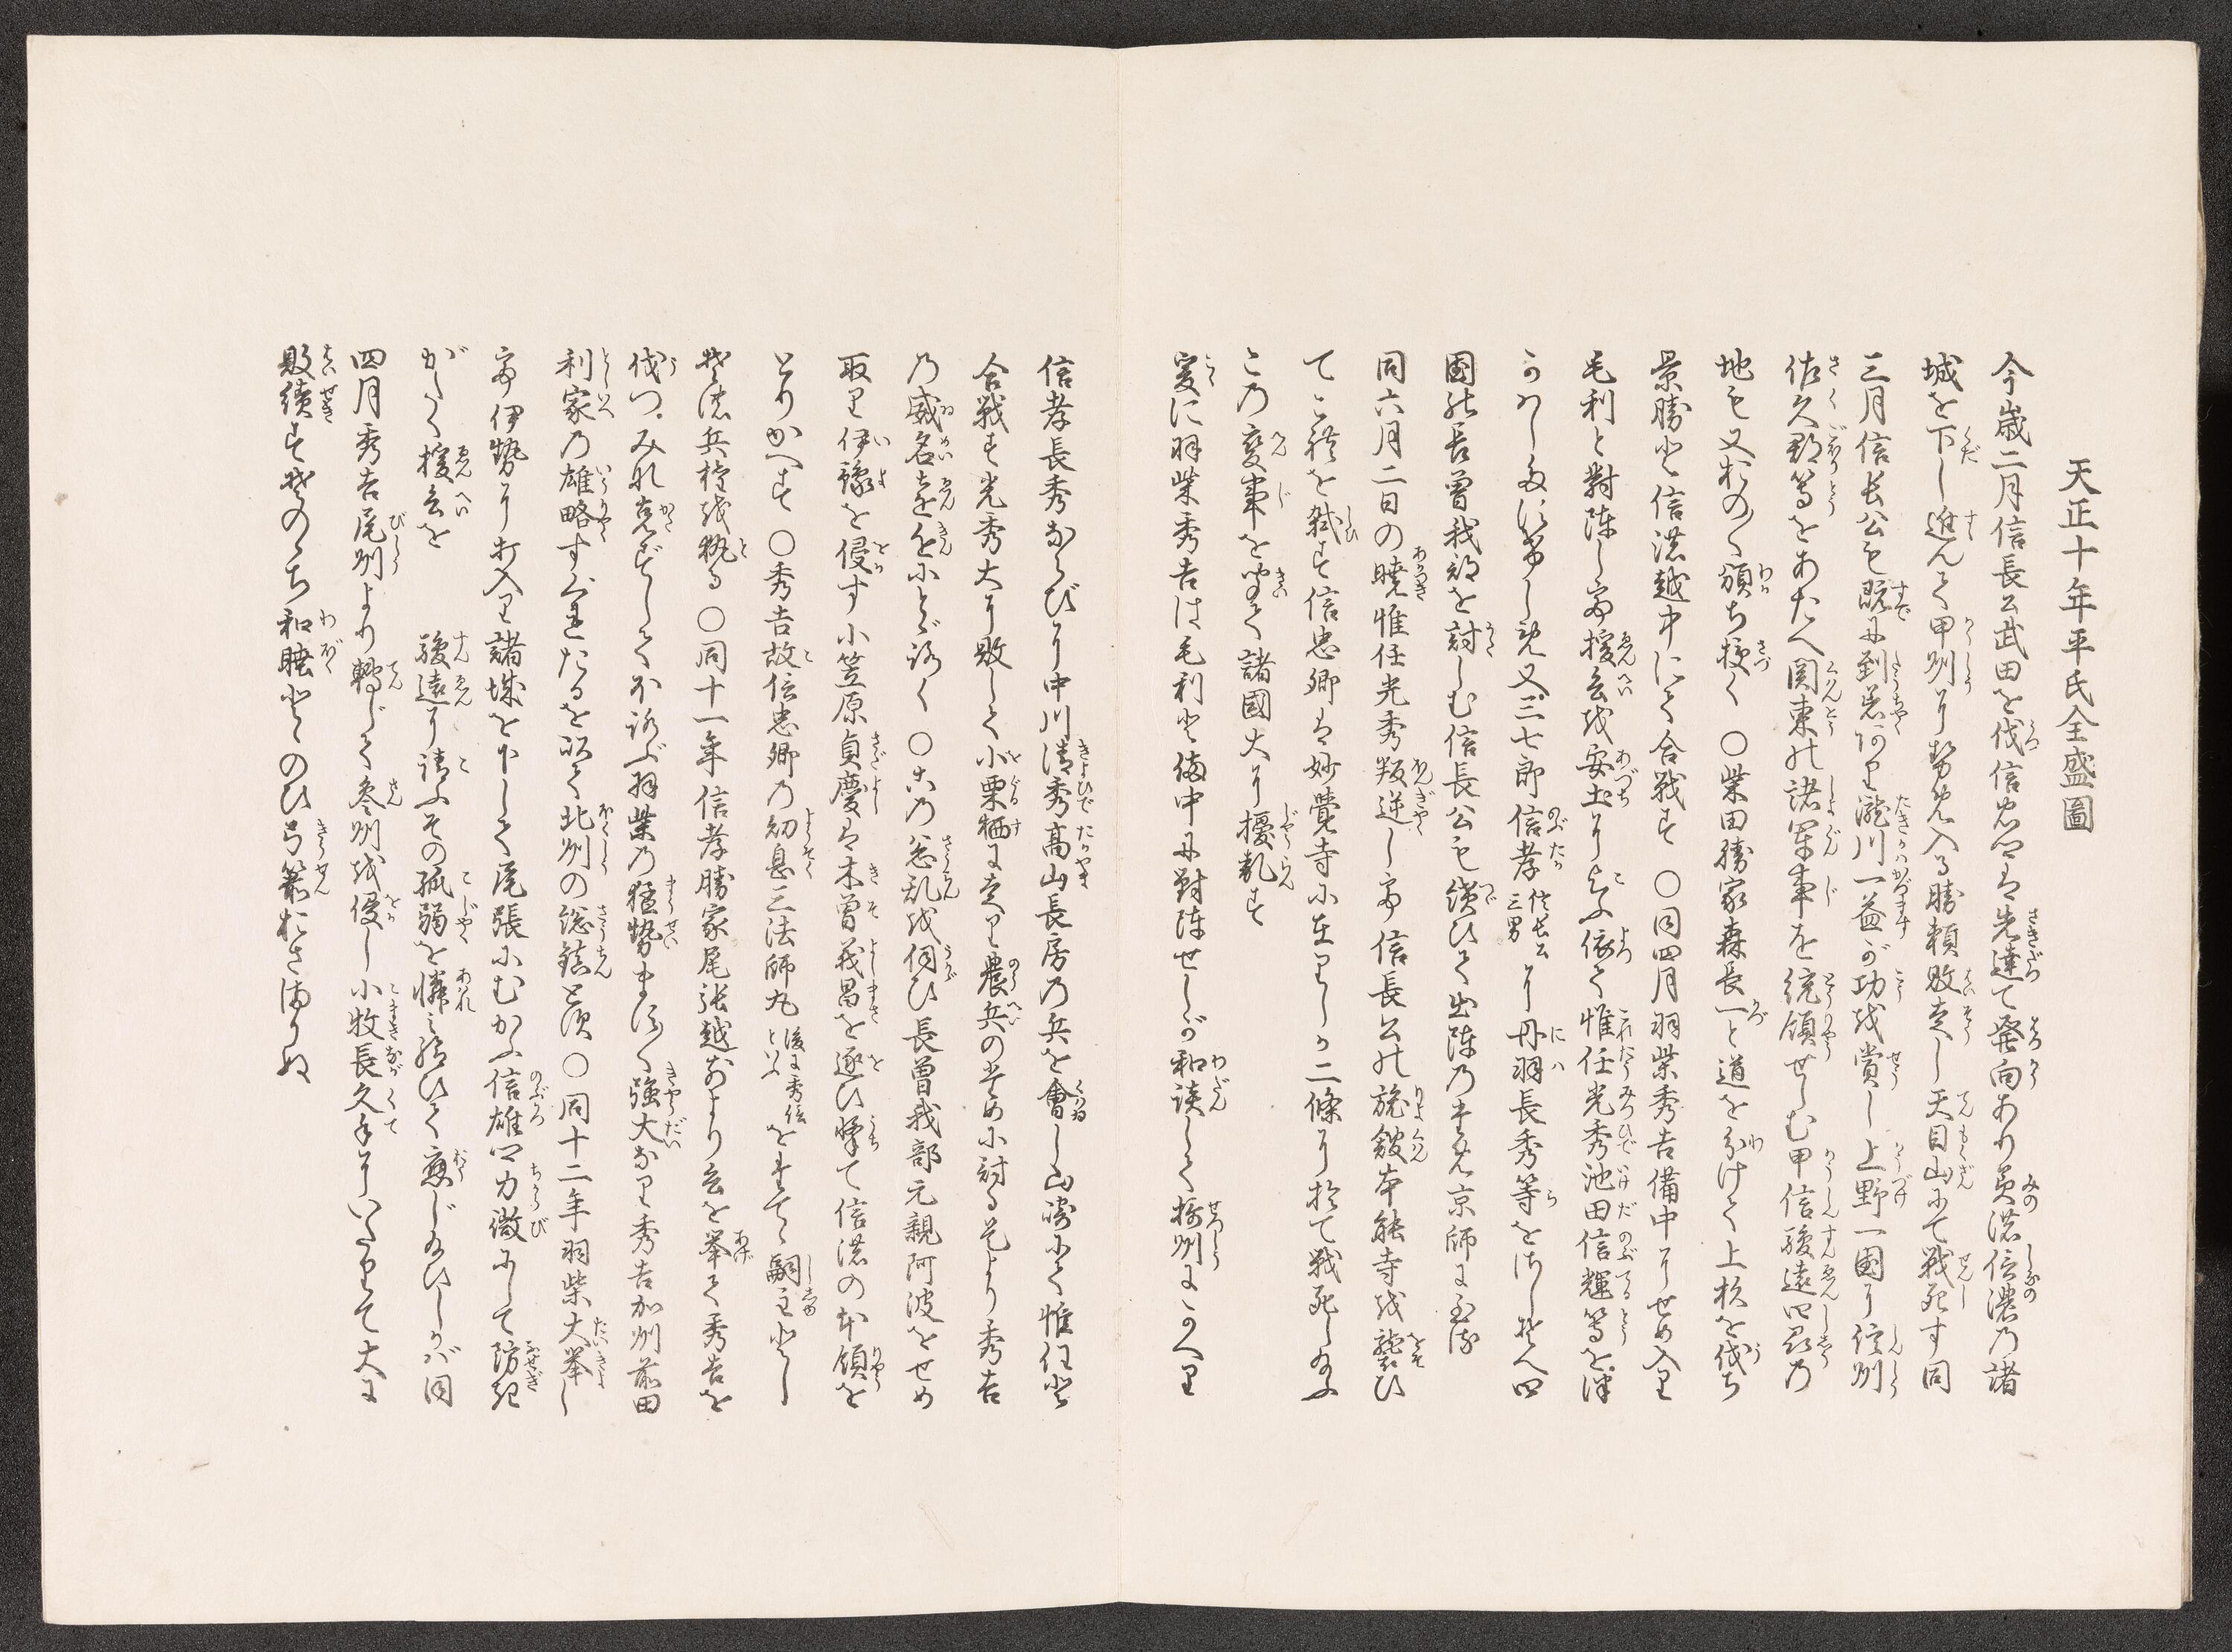 天正十年平氏全盛圖
今歳二月信長公武田を伐信忠卿ハ先達て発向あり美濃信濃乃諸
城を下し進んて甲州に攻め入る勝頼敗走し天目山にて戦死す同
三月信長公も既に到着あり瀧川一益が功を賞し上野一國に信州
佐久郡等をあたへ関東の諸軍事を統領せしむ甲信駿遠四郡乃
地も又おの〱頒ち授く○柴田勝家森長一と道を分けて上杦を伐ち
景勝と信濃越中にて合戦す○同四月羽柴秀吉備中にせめ入り
毛利と對陣し援兵を安土に乞ふ依て惟任光秀池田信輝等を
つかハし又三七郎信孝信長公三男に丹羽長秀等を
國の長曽我部を討しむ信長公も續ひて出陣乃京師に
同六月二日の暁惟任光秀叛逆し信長公の旅館本能寺を襲ひ
てこれを弑す信忠卿は妙覺寺に在りしが二條に於て戦死し給ふ
この変事を聞て諸國大に擾亂す
爰に羽柴秀吉は毛利と備中に對陣せしが和談して摂州にかへり
信孝長秀ならびに中川清秀髙山長房乃兵を會し山崎にて惟任と
合戦す光秀大に敗して小栗栖に走り農兵のために討る是より秀吉
乃威名遠近にとゞろく○この忩乱を伺ひ長曽我部元親阿波をせめ
取り伊豫を侵す小笠原貞慶ハ木曽義昌を逐ひ撃て信濃の本領を
とりかへす○秀吉故信忠卿乃幼息三法師丸後に秀信といふをたてゝ嗣主とし
その兵権を執る○同十一年信孝勝家尾張越前より兵を挙て秀吉を
伐つみな克ずしてほろぶ羽柴乃猛勢ます〱強大なり秀吉加州前田
利家乃雄略すぐれたるを以て北州の総鎮とす○同十二年羽柴大挙し
伊勢に打入り諸城を下して尾張にむかふ信雄卿力微にして防ぎ
がたく援兵を　駿遠に請ふその孤弱を憐み給ひて應じ給ひしかバ同
四月秀吉尾州より轉じて參州を侵し小牧長久手にいたりて大に
敗績すそのゝち和睦とゝのひ弓箭おさまりぬ